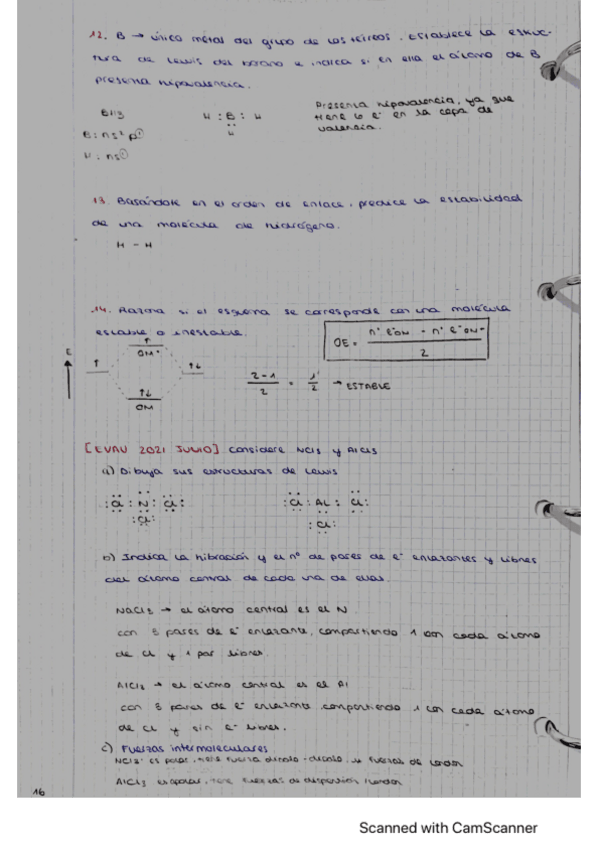 12. B → único metal del grupo de los térreos. Establece la estruc-
tura de Lewis del borano e indica si en ella el átomo de B
presenta hipovalencia.
BH3
H : B : H
H
Presenta hipovalencia, ya que
tiene 6 e⁻ en la capa de
valencia.
B : ns² p①
H : ns①
13. Basándote en el orden de enlace, predice la estabilidad
de una molécula de hidrógeno.
H - H
14. Razona si el esquema se corresponde con una molécula
estable o inestable.
OE = (nº e⁻OM - nº e⁻OM*) / 2
E
OM*
OM
(2-1)/2 = 1/2 → ESTABLE
[EVAU 2021 JUNIO] Considere NCl3 y AlCl3
a) Dibuja sus estructuras de Lewis
:Cl : N : Cl:
:Cl:
:Cl : AL : Cl:
:Cl:
b) Indica la hibración y el nº de pares de e⁻ enlazantes y libres
del átomo central de cada una de ellas.
NaCl3 → el átomo central es el N
con 3 pares de e⁻ enlazante, compartiendo 1 con cada átomo
de Cl y 1 par libres.
AlCl3 → el átomo central es el Al
con 3 pares de e⁻ enlazante compartiendo 1 con cada átomo
de Cl y sin e⁻ libres.
c) Fuerzas intermoleculares
NCl3 es polar, fuerza dipolo-dipolo, fuerzas de London
AlCl3 es apolar, fuerzas de dispersión London
16
Scanned with CamScanner